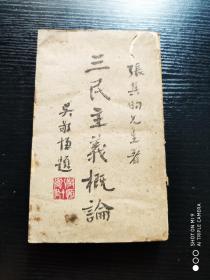 張其昀先生著
三民主義概論
吳敬恆題
SHOT ON MI 9
AI TRIPLE CAMERA